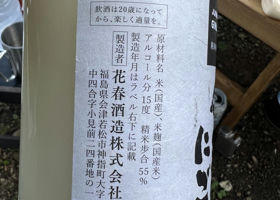 飲酒は20歳になって
から、楽しく適量を。
原材料名 米(国産)、米麹(国産米)
アルコール分15度 精米歩合55%
製造年月はラベル右下に記載
製造者 花春酒造株式会社
福島県会津若松市神指町大字
中四合字小見前二四番地の一
にご